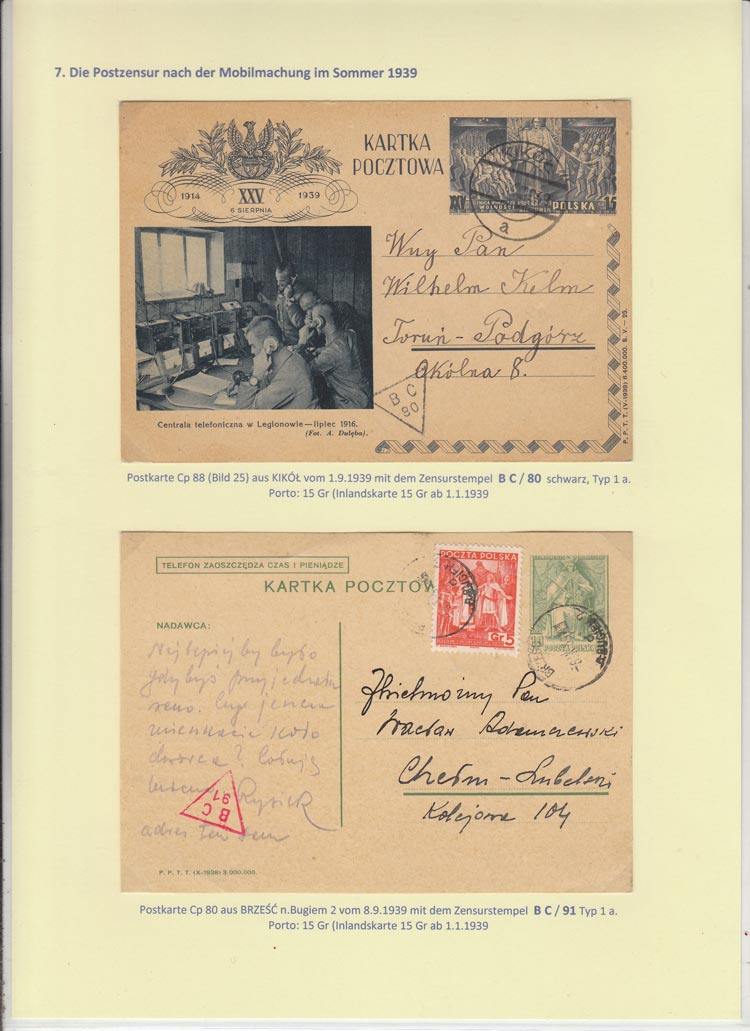 7. Die Postzensur nach der Mobilmachung im Sommer 1939
1914 XXV 1939
6 SIERPNIA
KARTKA
POCZTOWA
KIKÓŁ
a
XXV
POLSKA 15
Wny Pan
Wilhelm Kelm
Toruń - Podgórz
Okólna 8.
B C
80
Centrala telefoniczna w Legionowie—lipiec 1916.
(Fot. A. Dulęba).
P. P. T. T. (V-1939) 6.400.000. S. V. - 25.
Postkarte Cp 88 (Bild 25) aus KIKÓŁ vom 1.9.1939 mit dem Zensurstempel B C / 80 schwarz, Typ 1 a.
Porto: 15 Gr (Inlandskarte 15 Gr ab 1.1.1939
TELEFON ZAOSZCZĘDZA CZAS I PIENIĄDZE
KARTKA POCZTOW
POCZTA POLSKA
Gr 5
POCZTA POLSKA
NADAWCA:
Najlepiej by było
gdybyś przyjechała
mieszkacie koło
dworca?
Rysiek
adres ten sam
B C
91
Wacław Adamczewski
Chełm - Lubelski
Kolejowa 104
P. P. T. T. (X-1938) 3.000.000.
Postkarte Cp 80 aus BRZEŚĆ n.Bugiem 2 vom 8.9.1939 mit dem Zensurstempel B C / 91 Typ 1 a.
Porto: 15 Gr (Inlandskarte 15 Gr ab 1.1.1939